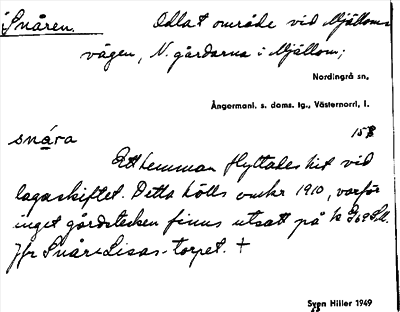 i Snåren. Odlat område vid Mjällom-
vägen, N. gårdarna i Mjällom;
Nordingrå sn,
Ångermanl. s. doms. tg., Västernorrl. l.
15B
snára
Ett hemman flyttades hit vid
laga skiftet. Detta hölls omkr 1910, varför
inget gårdstecken finns utsatt på k
Jfr Snår-Lisas-torpet. +
Sven Hiller 1949